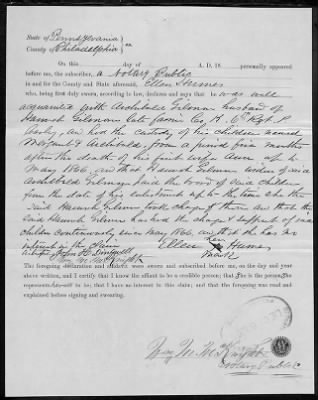 State of Pennsylvania
County of Philadelphia } ss
On this day of A. D. 18 personally appeared
before me, the subscriber, a Notary Public
in and for the County and State aforesaid, Ellen Humes
who, being first duly sworn, according to law, declares and says that he was well
acquainted with Archibald Gilmour husband of
Hannah Gilmour late Co. H. 6th Regt P.
and had the custody of his children named
Margaret & Archibald, from a period four months
after the death of his first wife up to
May 1866, and that Hannah Gilmour widow of said
Archibald Gilmour paid the board of said children
from the date of his enlistment up to the time when the
said Hannah Gilmour took charge of them and that the
said Hannah Gilmour has had the charge & support of said
children continuously since May 1866, and that she has no
interest in the claim
Ellen her Humes
mark
The foregoing declaration and affidavit were sworn and subscribed before me, on the day and year
above written, and I certify that I know the affiant to be a credible person; that she is the person she
represents herself to be; that I have no interest in this claim; and that the foregoing was read and
explained before signing and swearing.
Wm. McKnight
Notary Public